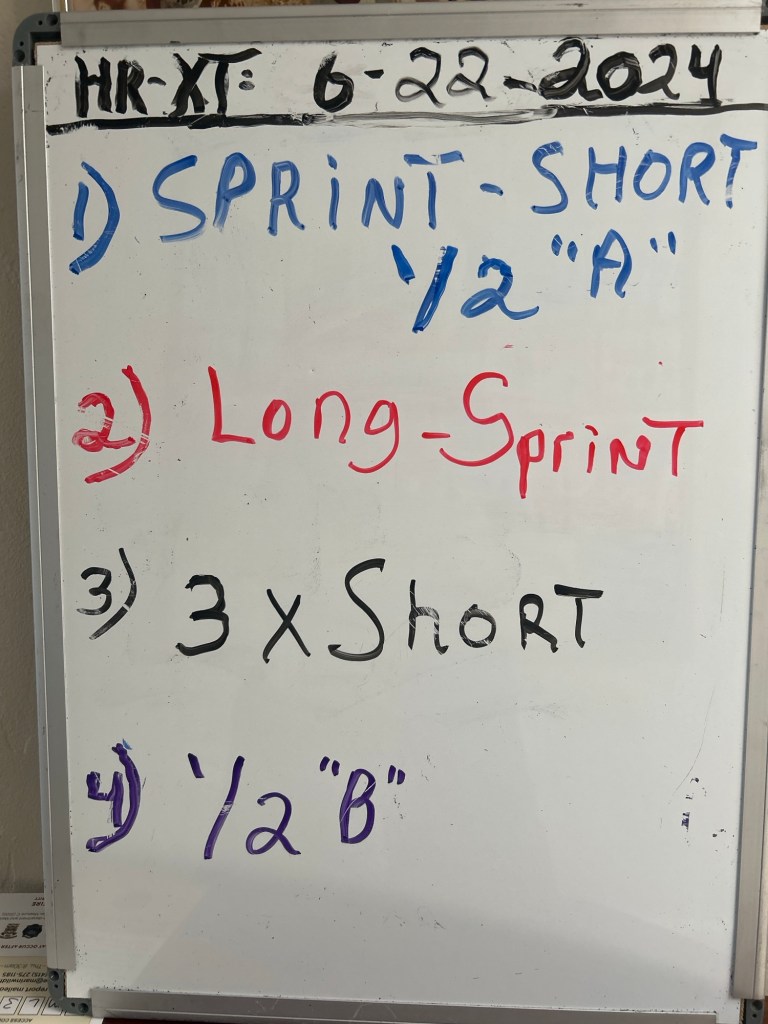 HR-XT: 6-22-2024
1) SPRINT - SHORT
1/2 "A"
2) Long-Sprint
3) 3 x Short
4) 1/2 "B"